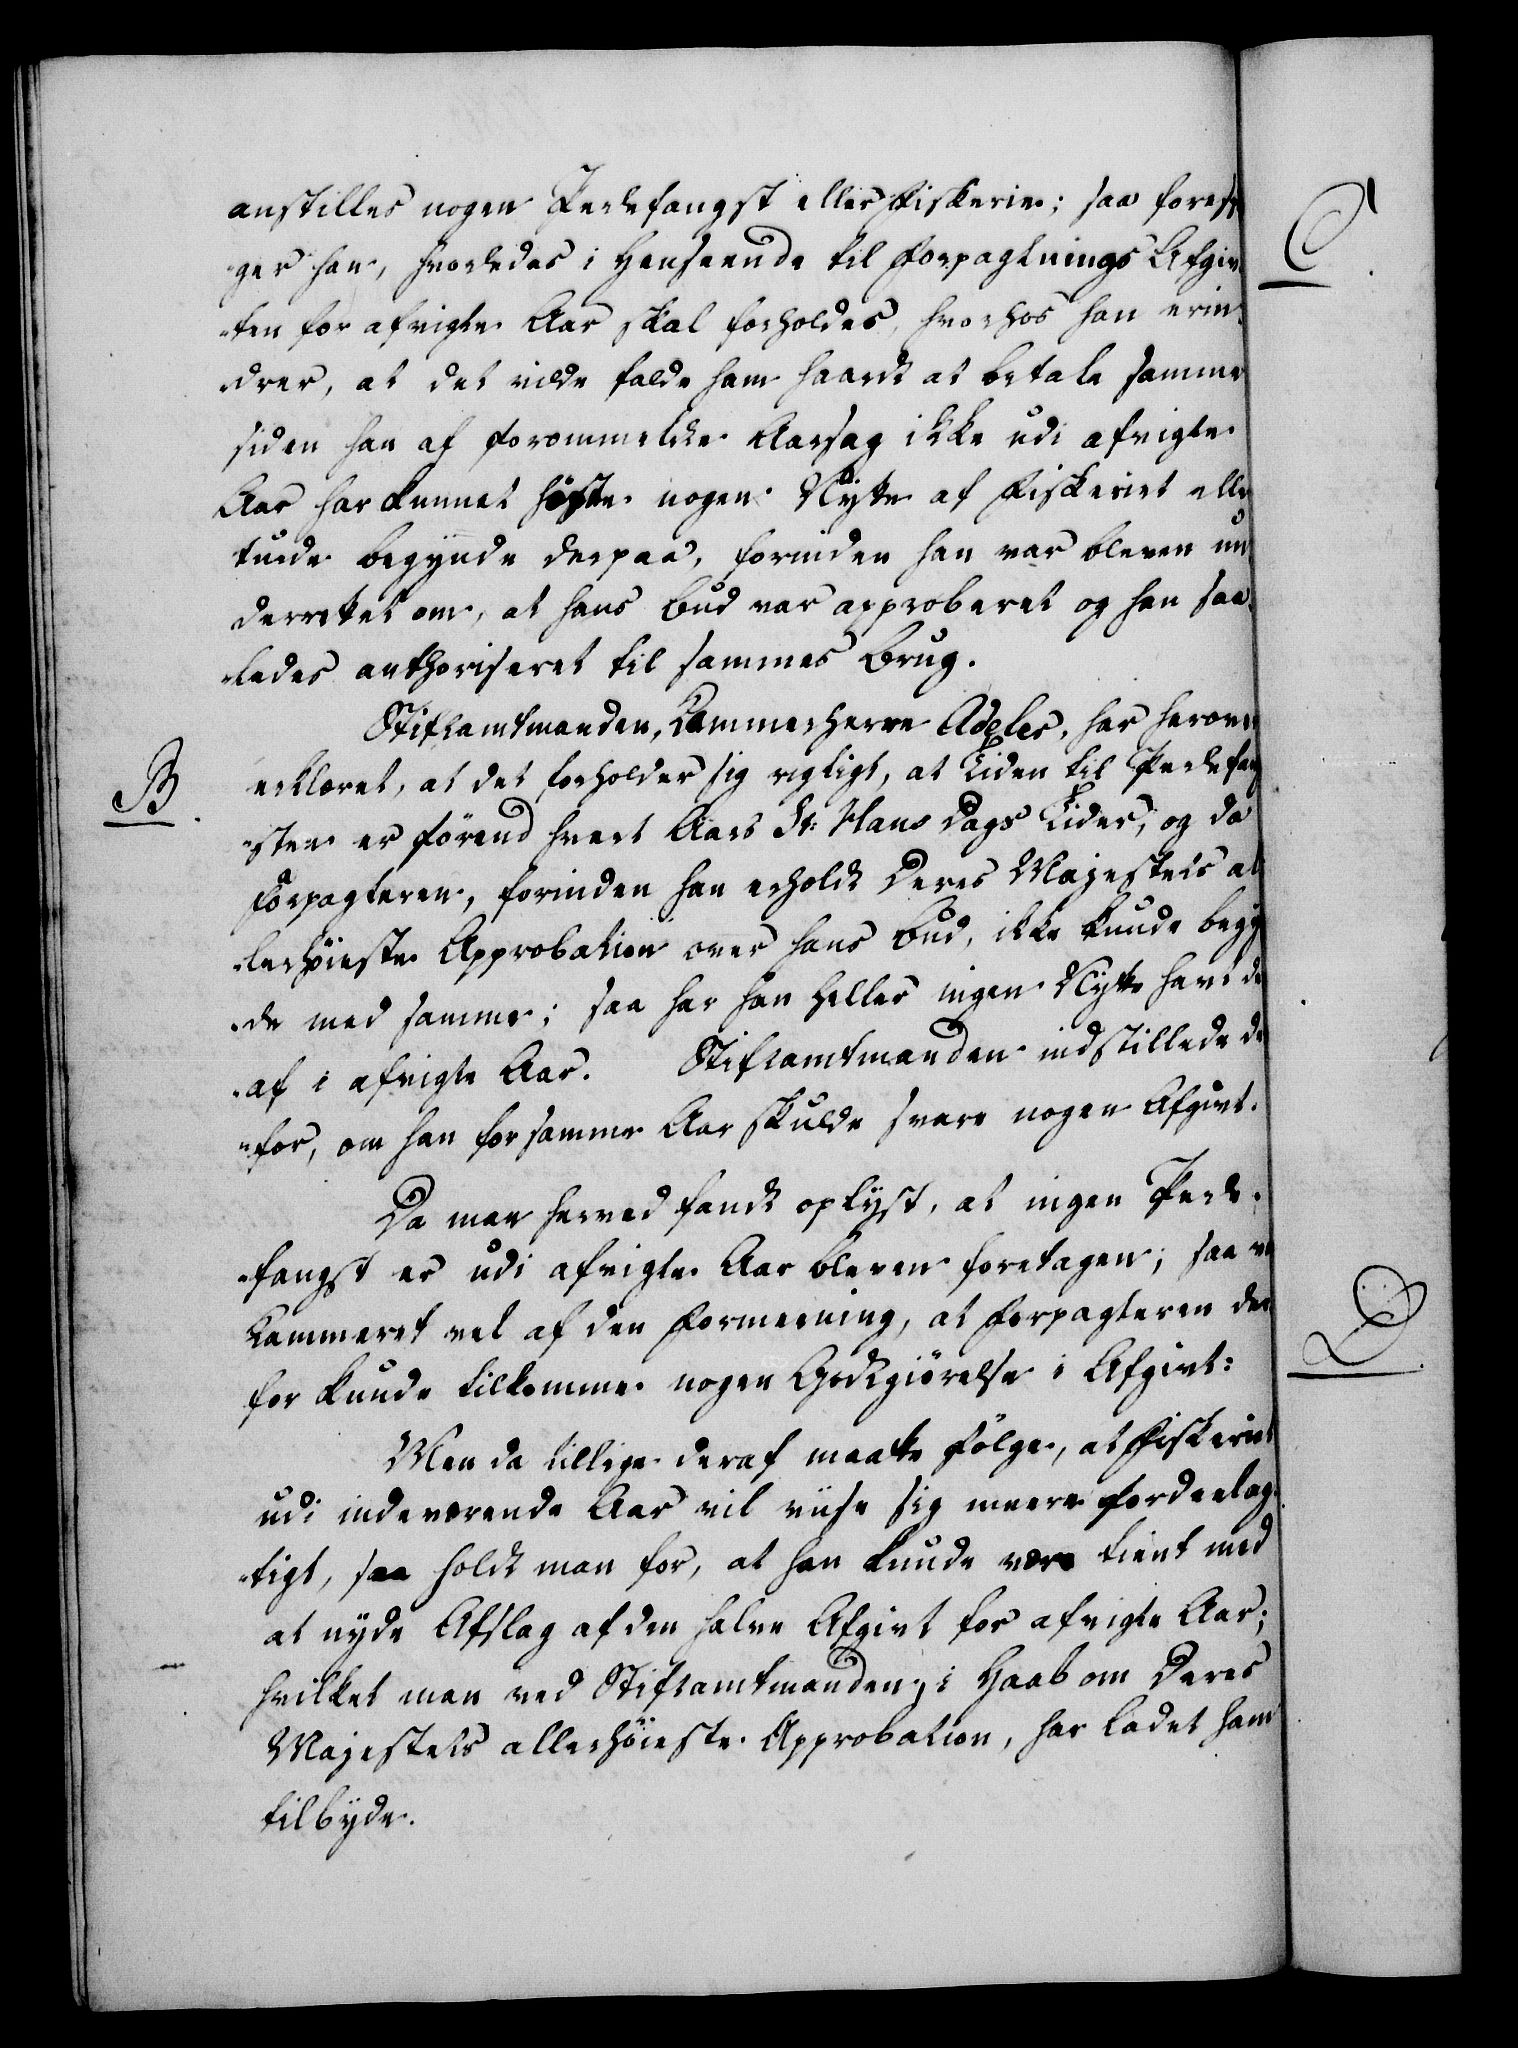 anstilles nogen Perlefangst eller Fiskerie; saa forespø
ger han, hvorledes i Henseende til Forpagtnings Afgiv
ten for afvigte Aar skal forholdes, hvorhos han erin
drer, at det vilde falde ham haardt at betale samme
siden han af forommeldte Aarsag ikke udi afvigte
Aar har kunnet høste nogen Nytte af Fiskeriet elle
turde begynde derpaa, forinden han var bleven un
derrettet om, at hans Bud var approberet og han saa
ledes authoriseret til sammes Brug.
Stiftamtmanden, Kammerherre Adeler, har herover
B
erklæret, at det forholder sig rigtigt, at Tiden til Perlefang
sten er førend hvert Aars St: Hans Dags Tider, og da
Forpagteren, forinden han erholdt Deres Majestets al
lerhøieste Approbation over hans Bud, ikke kunde begyn
de med samme; saa har han heller ingen Nytte havt der
af i afvigte Aar. Stiftamtmanden indstillede der
for, om han for samme Aar skulde svare nogen Afgivt.
Da man herved fandt oplyst, at ingen Perle-
fangst er udi afvigte Aar bleven foretagen; saa var
Kammeret vel af den Formeening, at Forpagteren der
for kunde tilkomme nogen Godtgiørelse i Afgivt:
Men da tillige deraf maatte følge, at Fiskeriet
udi indeværende Aar vil viise sig meere fordeelag
tigt, saa holdt man for, at han kunde være tient med
at nyde Afslag af den halve Afgivt for afvigte Aar;
hvilket man ved Stiftamtmanden, i Haab om Deres
Majestets allerhøieste Approbation, har ladet ham
tilbyde.
C
D